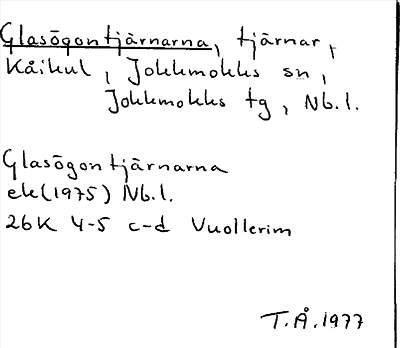 Glasögontjärnarna, tjärnar,
Kåikul, Jokkmokks sn,
Jokkmokks tg, Nb.l.
Glasögontjärnarna
ek(1975) Nb.l.
26K 4-5 c-d Vuollerim
T.Å.1977